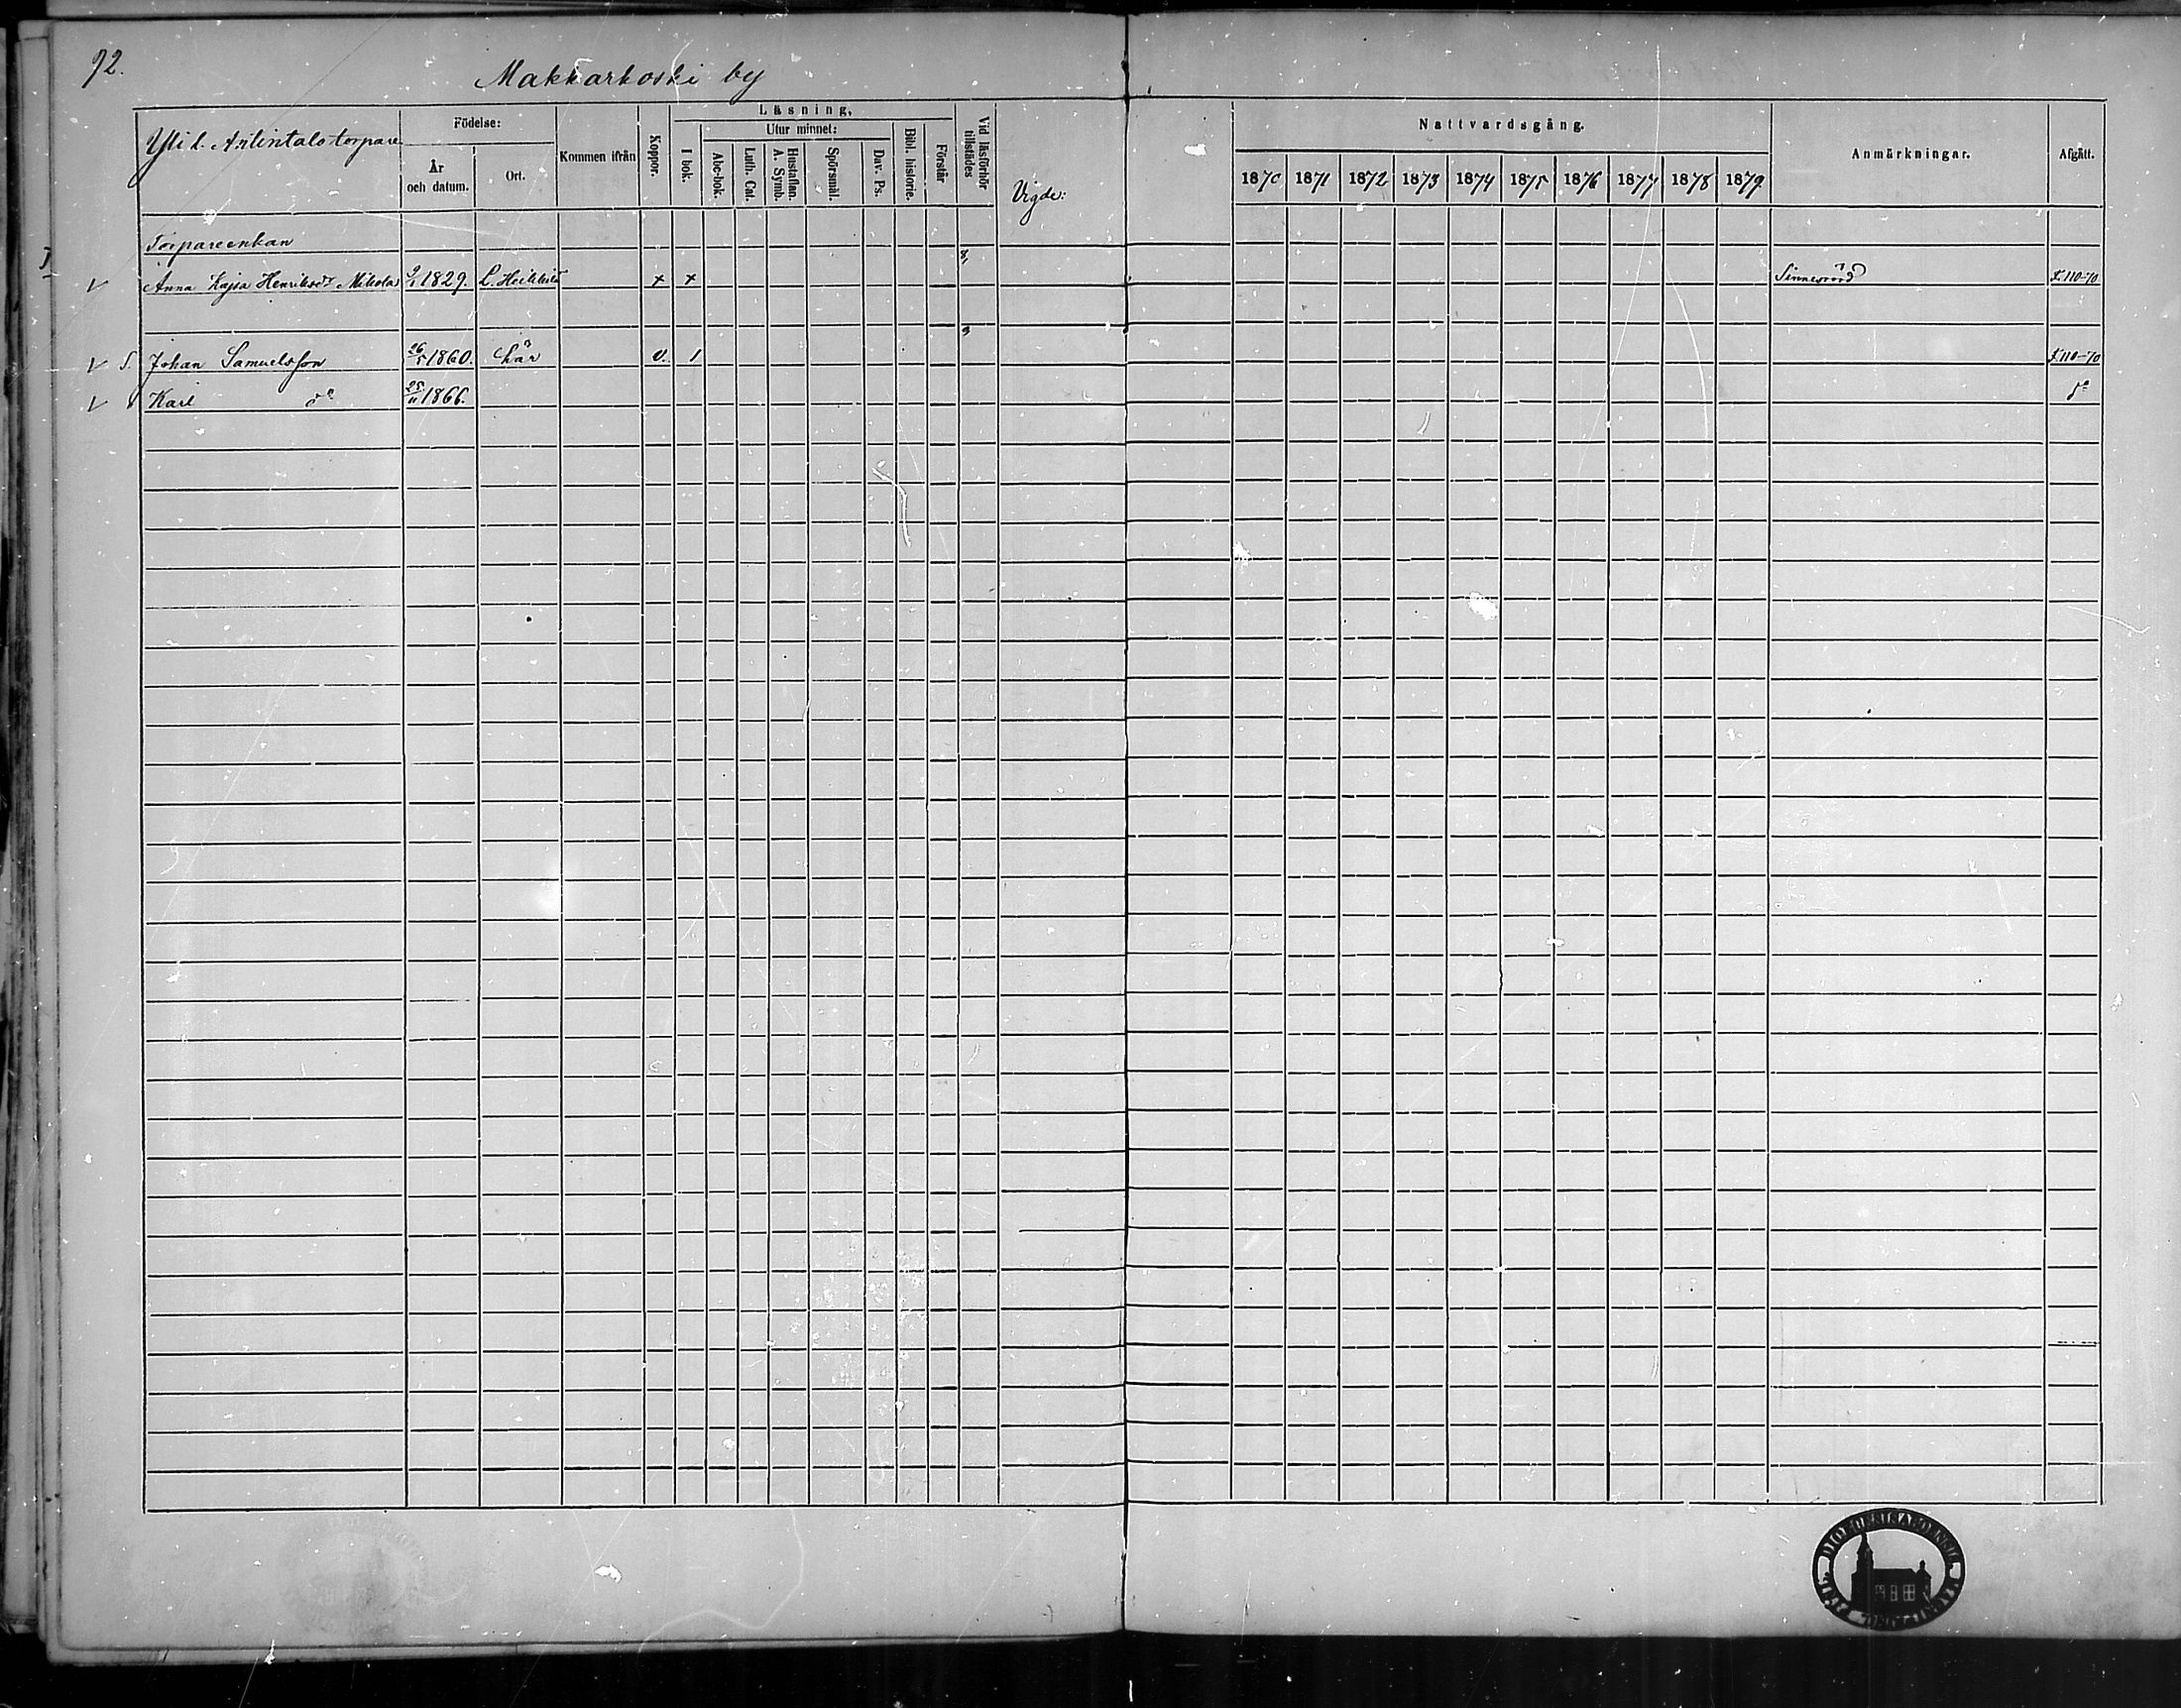 92.
Makkarkoski by
Yli l. Anlintalo torpare
Födelse:
År och datum.
Ort.
Kommen ifrån
Koppor.
Läsning,
I bok.
Utur minnet:
Abc-bok.
Luth. Cat.
Hustaflan. A. Symb.
Spörsmål.
Dav. Ps.
Bibl. historie.
Förstår
Vid läsförhör tillstädes
Vigde:
Nattvardsgång.
1870 1871 1872 1873 1874 1875 1876 1877 1878 1879
Anmärkningar.
Afgått.
Torpareenkan
I
v Anna Kajsa Henriksdr 1829. L. x x Sinnesrörd f. 110-70
v S. Johan Samuelsson 26/5 1860. här v. 1 f. 110-70
v Karl do 25/11 1866. do